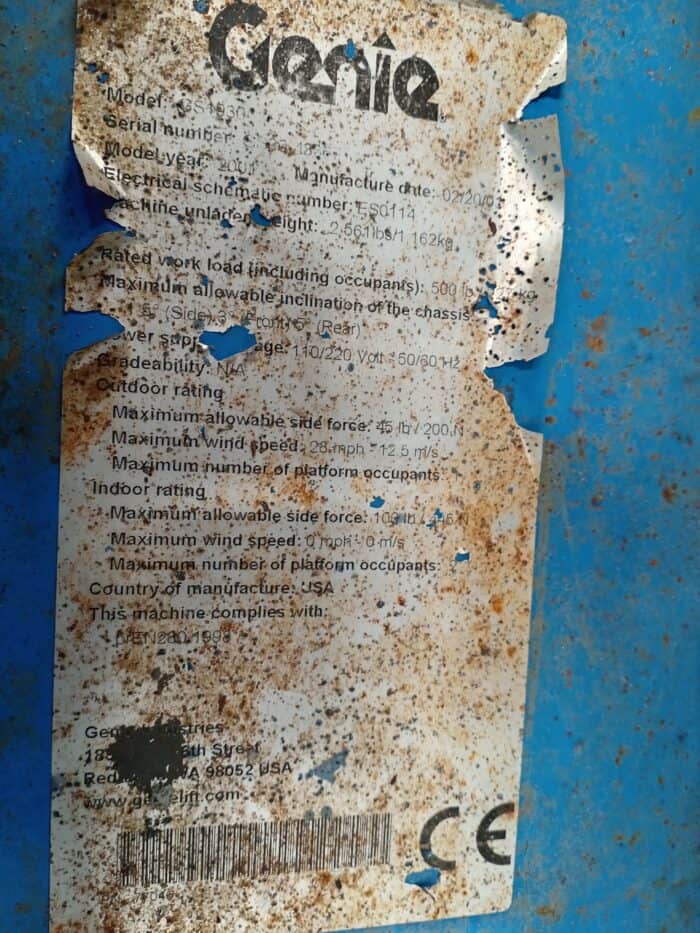 Genie
Model: GS1930
Serial number
Model year: 2001 Manufacture date: 02/20/01
Electrical schematic number: ES0114
achine unladen eight: 2,561lbs/1,162kg
Rated work load (including occupants): 500 lb kg
Maximum allowable inclination of the chassis:
(Side) 3° (Front) 5° (Rear)
ower supp age: 110/220 Volt - 50/60 Hz
Gradeability: N/A
Outdoor rating
Maximum allowable side force: 45 lb / 200 N
Maximum wind speed: 28 mph - 12.5 m/s
Maximum number of platform occupants:
Indoor rating
Maximum allowable side force: lb / N
Maximum wind speed: 0 mph - 0 m/s
Maximum number of platform occupants:
Country of manufacture: USA
This machine complies with:
EN280:1998
Gen ustries
18 6th Street
Red WA 98052 USA
www.ge elift.com
CE